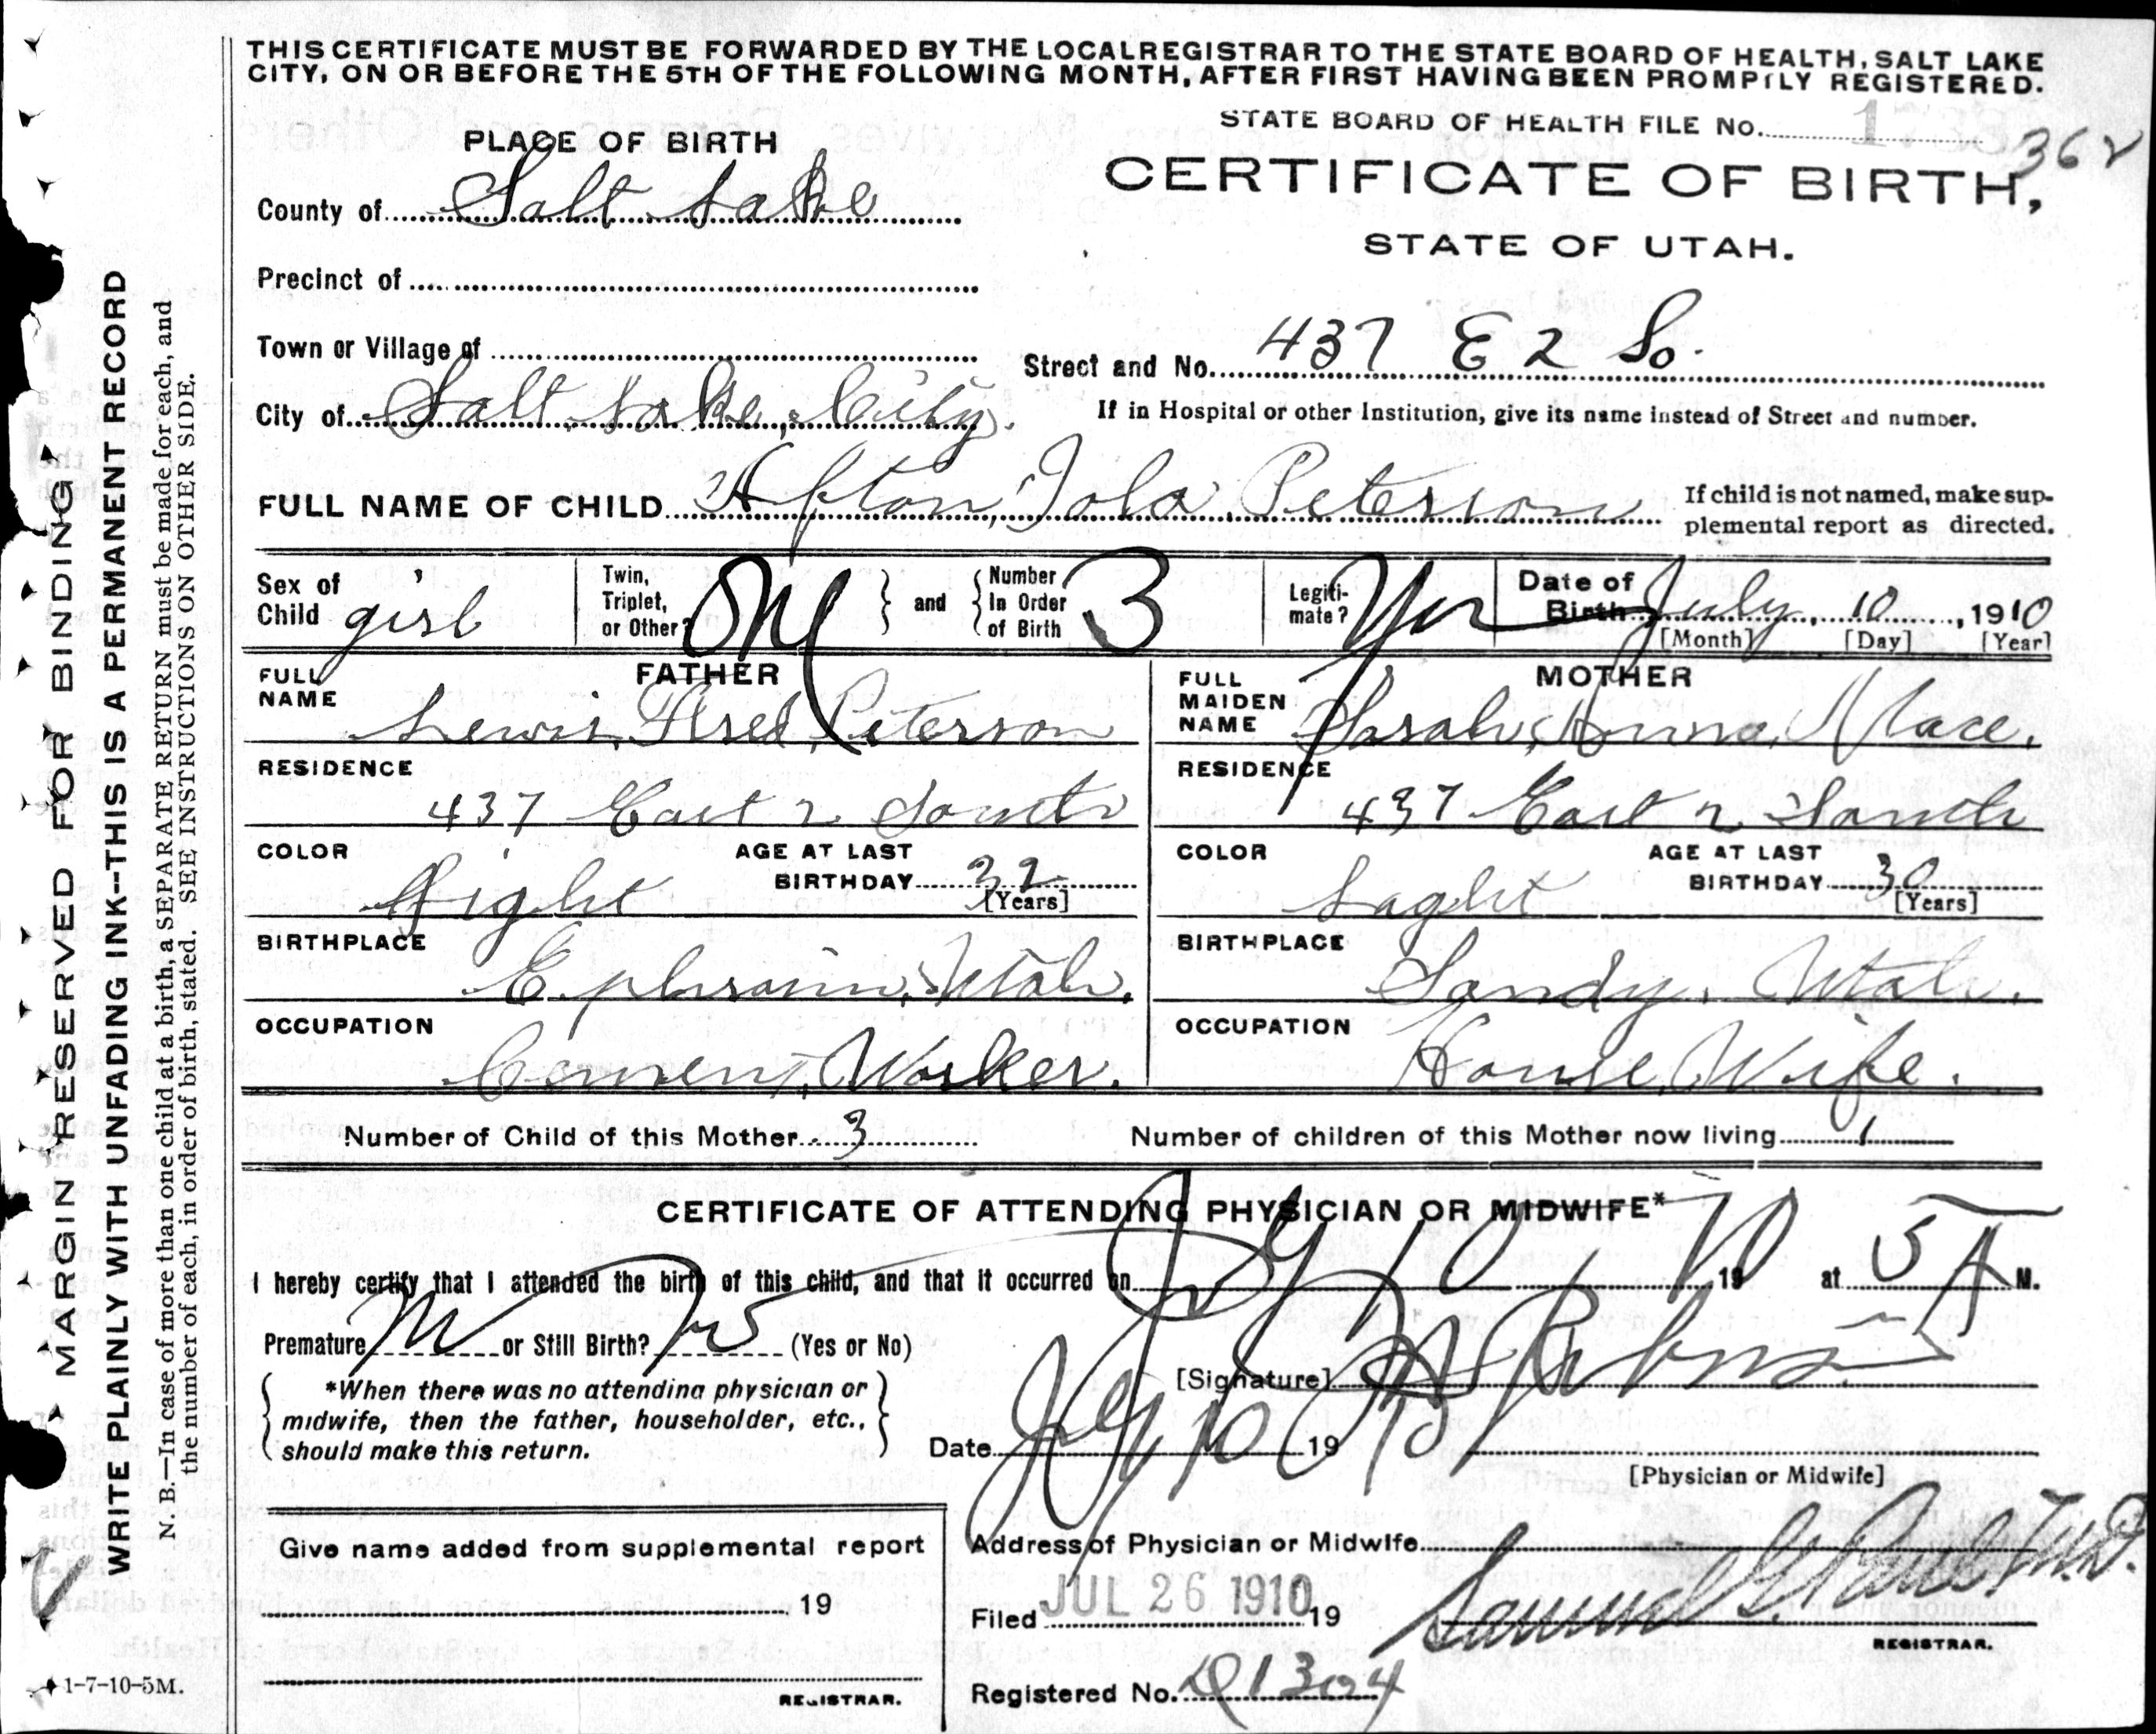 THIS CERTIFICATE MUST BE FORWARDED BY THE LOCAL REGISTRAR TO THE STATE BOARD OF HEALTH, SALT LAKE
CITY, ON OR BEFORE THE 5TH OF THE FOLLOWING MONTH, AFTER FIRST HAVING BEEN PROMPTLY REGISTERED.
STATE BOARD OF HEALTH FILE No.
362
PLACE OF BIRTH
CERTIFICATE OF BIRTH,
County of Salt Lake
STATE OF UTAH.
Precinct of
Town or Village of
Street and No. 437 E 2 So.
City of Salt Lake City.
If in Hospital or other Institution, give its name instead of Street and number.
FULL NAME OF CHILD Afton Iola Peterson
If child is not named, make sup-
plemental report as directed.
Sex of Child girl
Twin, Triplet, or Other?
and
Number In Order of Birth 3
Legiti-mate? Yes
Date of Birth July 10, 1910
[Month] [Day] [Year]
FATHER
FULL NAME Lewis Fred Peterson
MOTHER
FULL MAIDEN NAME Sarah Anna Mace.
RESIDENCE 437 East 2 South
RESIDENCE 437 East 2 South
COLOR
AGE AT LAST BIRTHDAY 32 [Years]
COLOR
AGE AT LAST BIRTHDAY 30 [Years]
BIRTHPLACE Ephraim, Utah.
BIRTHPLACE Sandy, Utah.
OCCUPATION Cement Worker.
OCCUPATION House Wife.
Number of Child of this Mother 3
Number of children of this Mother now living 1
CERTIFICATE OF ATTENDING PHYSICIAN OR MIDWIFE*
I hereby certify that I attended the birth of this child, and that it occurred on July 10 1910 at 5 A M.
Premature No or Still Birth? No (Yes or No)
[Signature]
*When there was no attending physician or
midwife, then the father, householder, etc.,
should make this return.
Date July 10 1910
[Physician or Midwife]
Give name added from supplemental report
Address of Physician or Midwife
19
Filed JUL 26 1910 19
Samuel G. Paul M.D.
REGISTRAR.
REGISTRAR.
Registered No.
1-7-10-5M.
MARGIN RESERVED FOR BINDING
WRITE PLAINLY WITH UNFADING INK--THIS IS A PERMANENT RECORD
N. B.—In case of more than one child at a birth, a SEPARATE RETURN must be made for each, and
the number of each, in order of birth, stated. SEE INSTRUCTIONS ON OTHER SIDE.